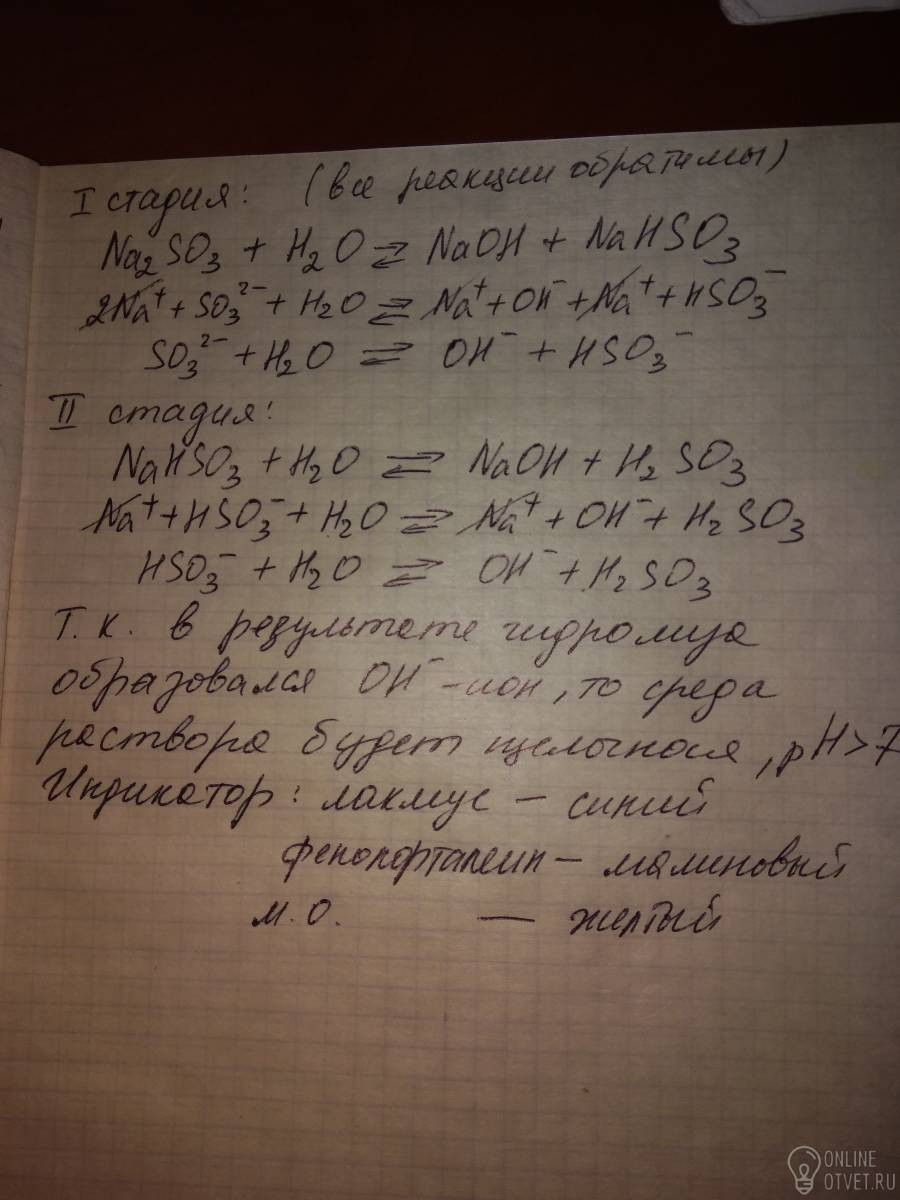 I стадия: (все реакции обратимы)
Na₂SO₃ + H₂O ⇄ NaOH + NaHSO₃
2Na⁺ + SO₃²⁻ + H₂O ⇄ Na⁺ + OH⁻ + Na⁺ + HSO₃⁻
SO₃²⁻ + H₂O ⇄ OH⁻ + HSO₃⁻
II стадия:
NaHSO₃ + H₂O ⇄ NaOH + H₂SO₃
Na⁺ + HSO₃⁻ + H₂O ⇄ Na⁺ + OH⁻ + H₂SO₃
HSO₃⁻ + H₂O ⇄ OH⁻ + H₂SO₃
Т.к. в результате гидролиза
образовался OH⁻ -ион, то среда
раствора будет щелочная, pH>7
Индикатор: лакмус – синий
фенолфталеин – малиновый
м.о. — желтый
ONLINE
OTVET.RU